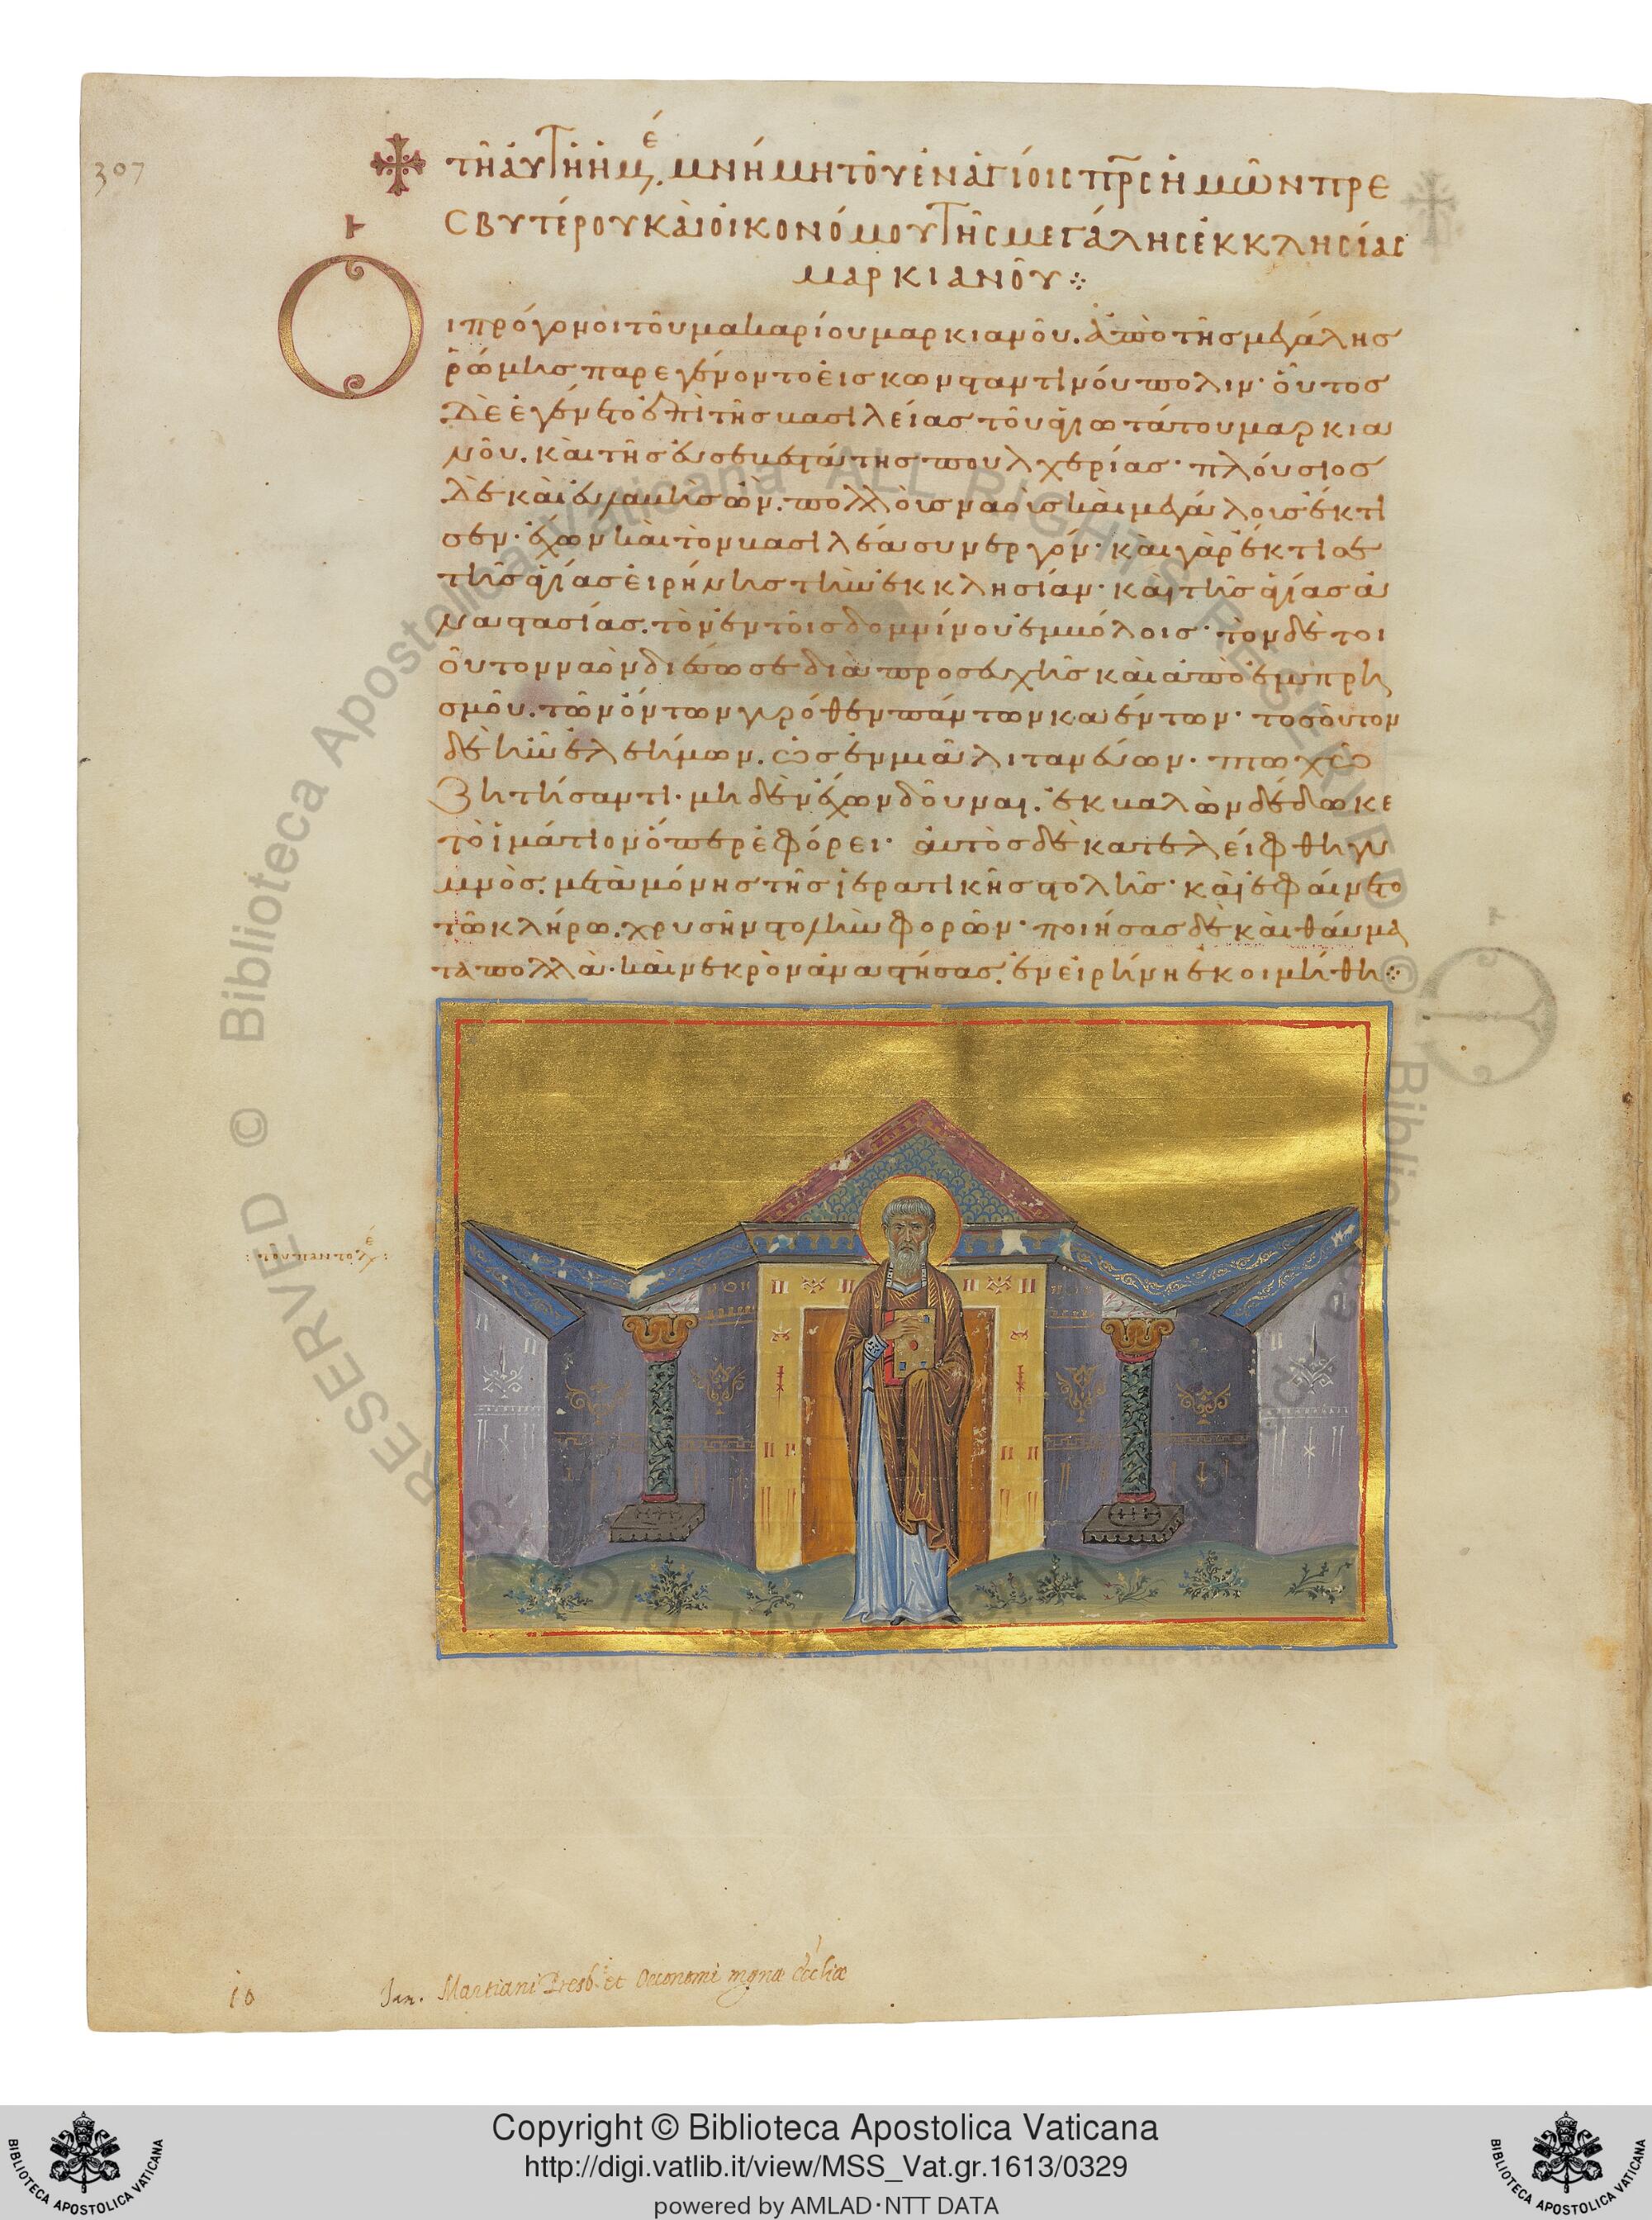 307
τῆ αὐτῆ ἡμέ. μνήμη τοῦ ἐν ἁγίοις πρς ἡμῶν πρε
σβυτέρου καὶ οἰκονόμου τῆς μεγάλης ἐκκλησίας
μαρκιανοῦ
Οἱ πρόγονοι τοῦ μακαρίου μαρκιανοῦ. ἀπὸ τῆς μεγάλης
ῥώμης παρεγένοντο εἰς κωνσταντινούπολιν· οὗτος
δὲ ἐγένετο ἐπὶ τῆς βασιλείας τοῦ ἁγιωτάτου μαρκια
νοῦ. καὶ τῆς εὐσεβεστάτης πουλχερίας· πλούσιος
δὲ καὶ εὐγενὴς ὢν. πολλοῖς ναοῖς καὶ μεγάλοις ἔκτι
σεν· ἔχων καὶ τὸν βασιλέα συνεργόν· καὶ γὰρ ἔκτισε
τῆς ἁγίας εἰρήνης τὴν ἐκκλησίαν· καὶ τῆς ἁγίας ἀ
ναστασίας. τὸν ἐν τοῖς δομνίνου ἐμβόλοις· τὸν δὲ τοι
οῦτον ναὸν διέσωσε διὰ προσευχῆς καὶ ἀπὸ ἐμπρη
σμοῦ. τῶν ὄντων γυρόθεν πάντων καέντων· τοσοῦτον
δὲ ἦν ἐλεήμων. ὡς ἐν μιᾶ λιτανεύων. πτωχῶ
ζητήσαντι. μηδὲν ἔχων δοῦναι. ἐκβαλὼν δέδωκε
τὸ ἱμάτιον ὅπερ ἐφόρει· αὐτὸς δὲ κατελείφθη γυ
μνὸς. μετὰ μόνης τῆς ἱερατικῆς στολῆς· καὶ ἐφαίνετο
τῶ κλήρω. χρυσῆν στολὴν φορῶν· ποιήσας δὲ καὶ θαύμα
τα πολλὰ. καὶ νεκρὸν ἀναστήσας. ἐν εἰρήνη ἐκοιμήθη
10 Jan. Martiani Presb. et Oeconomi magnæ Eccliæ
Biblioteca Apostolica Vaticana ALL RIGHTS RESERVED ©
Copyright © Biblioteca Apostolica Vaticana
http://digi.vatlib.it/view/MSS_Vat.gr.1613/0329
powered by AMLAD·NTT DATA
BIBLIOTECA APOSTOLICA VATICANA
BIBLIOTECA APOSTOLICA VATICANA